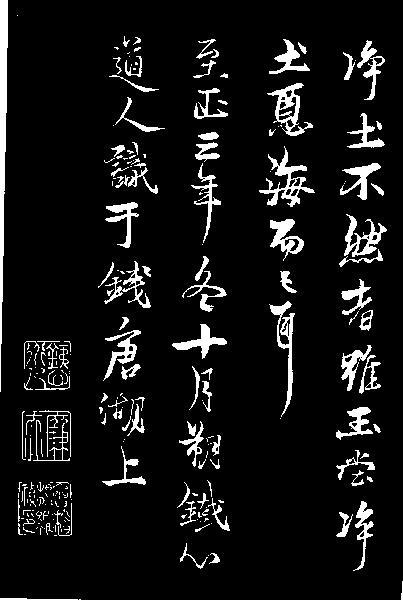 净土不然者雖玉堂净
土惡海而已耳
至正三年冬十月朔鐵心
道人識于錢唐湖上